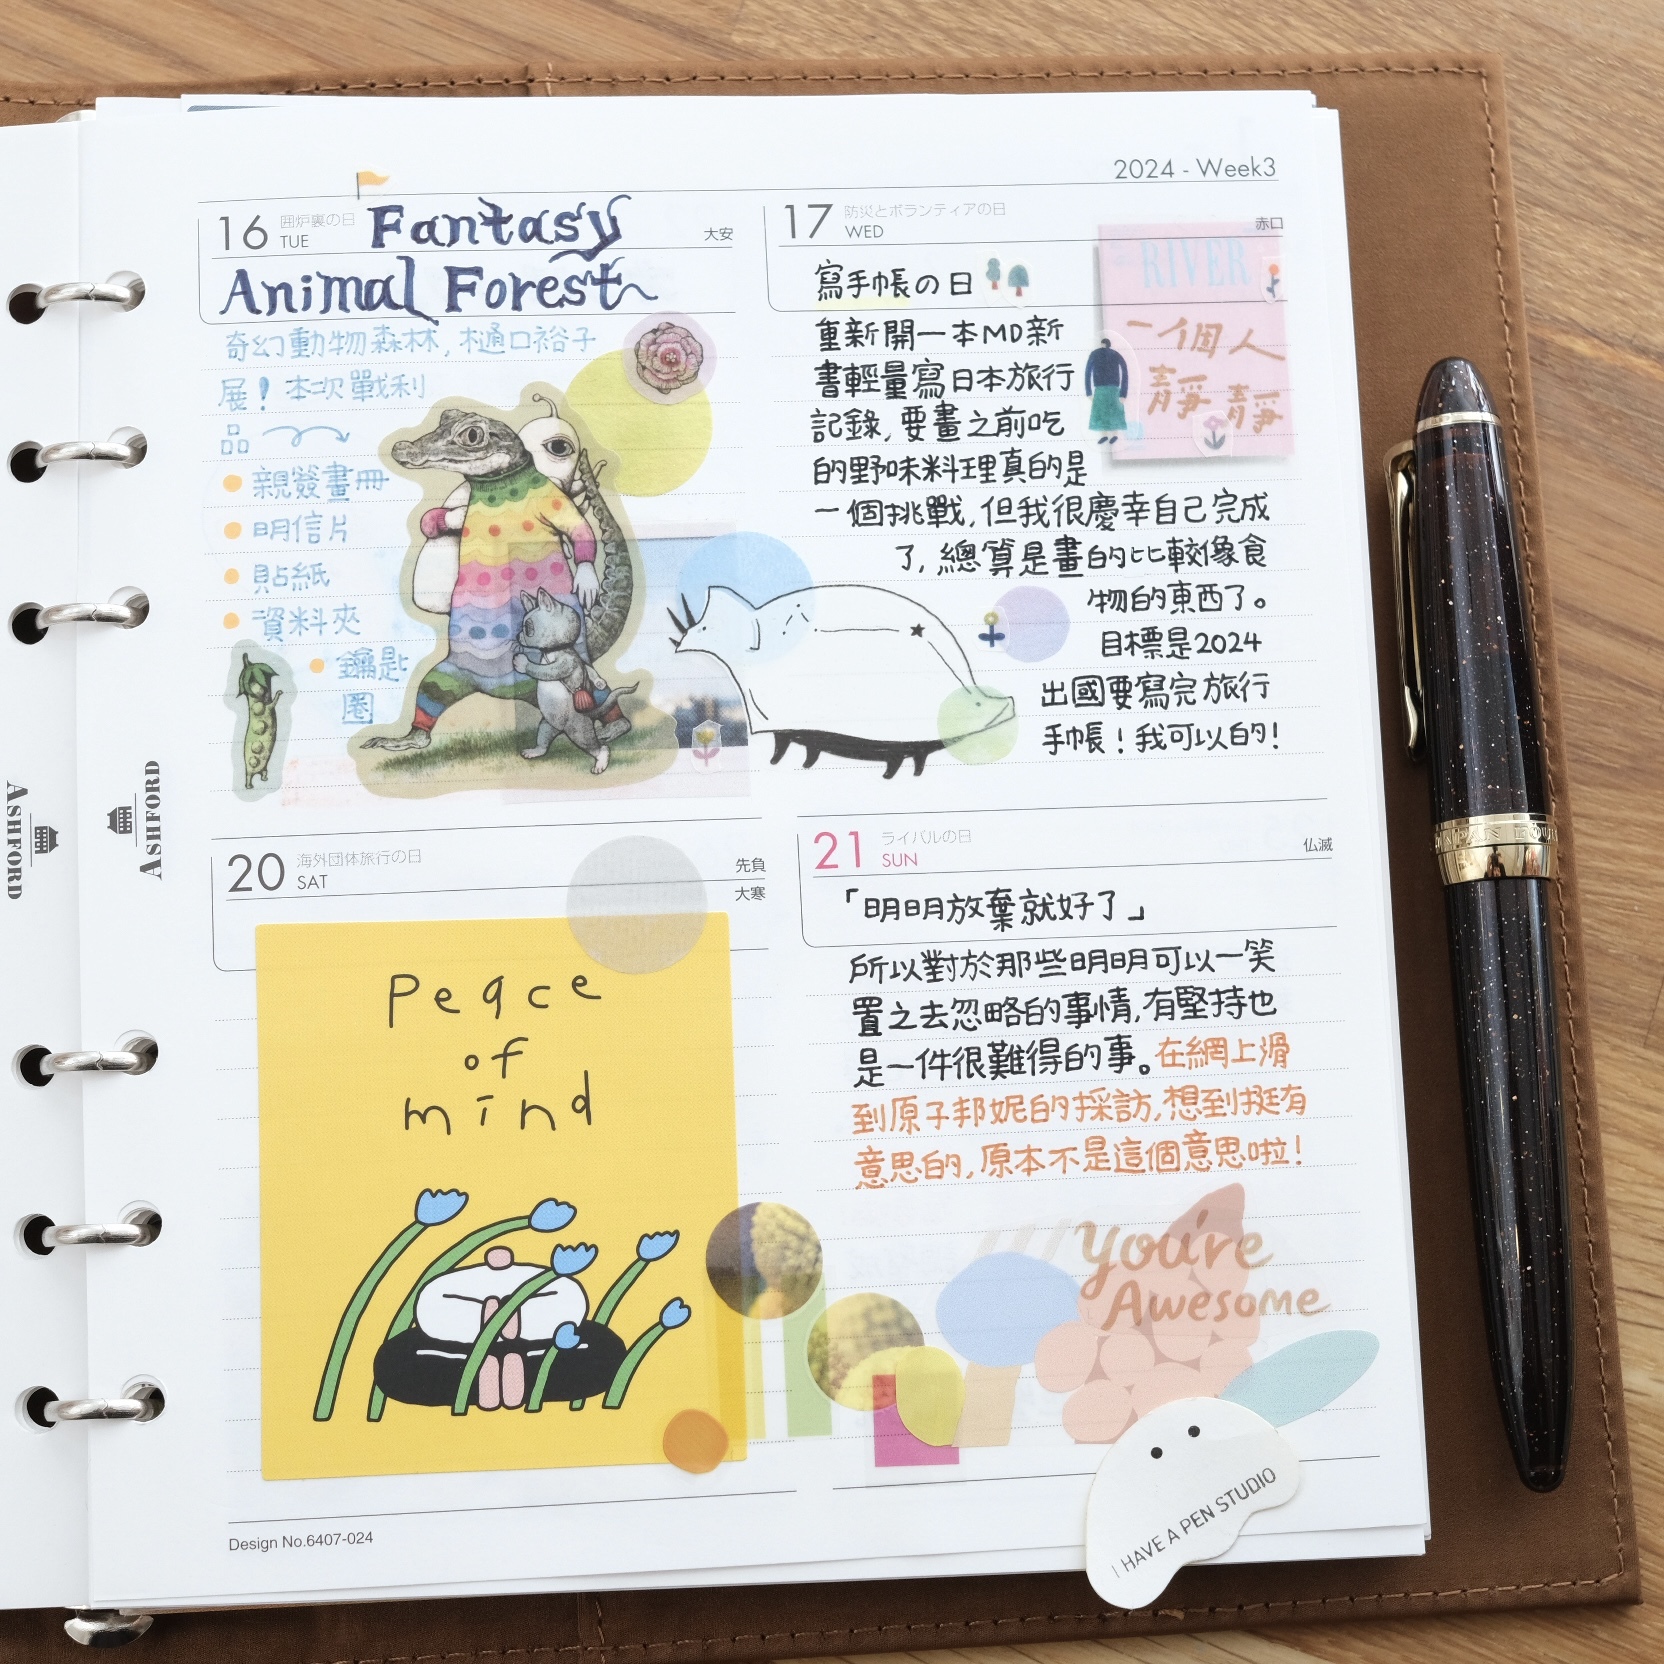 2024 - Week3
16
囲炉裏の日
TUE
大安
Fantasy
Animal Forest
奇幻動物森林,樋口裕子
展!本次戰利
品
親簽畫冊
明信片
貼紙
資料夾
鑰匙
圈
17
防災とボランティアの日
WED
赤口
寫手帳の日
重新開一本MD新
書輕量寫日本旅行
記錄,要畫之前吃
的野味料理真的是
一個挑戰,但我很慶幸自己完成
了,總算是畫的比較像食
物的東西了。
目標是2024
出國要寫完旅行
手帳!我可以的!
RIVER
一個人
靜靜
ASHFORD
ASHFORD
20
海外団体旅行の日
SAT
先負
大寒
Peace
of
mind
21
ライバルの日
SUN
仏滅
「明明放棄就好了」
所以對於那些明明可以一笑
置之去忽略的事情,有堅持也
是一件很難得的事。在網上滑
到原子邦妮的採訪,想到挺有
意思的,原本不是這個意思啦!
You're
Awesome
I HAVE A PEN STUDIO
Design No.6407-024